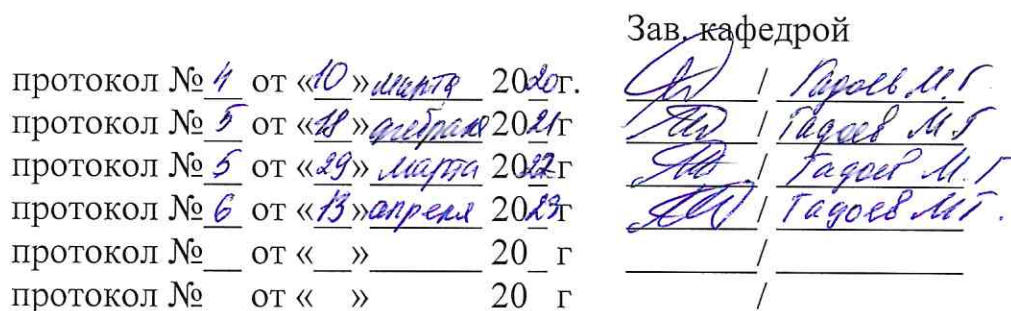 Зав. кафедрой
протокол № 4 от «10» марта 2020г. / Гадоев М.Г
протокол № 5 от «18» февраля 2021г / Гадоев М.Г
протокол № 5 от «29» марта 2022г / Гадоев М.Г
протокол № 6 от «13» апреля 2023г / Гадоев М.Г.
протокол №__ от «__»______ 20_ г ______/______
протокол № от « » 20 г /